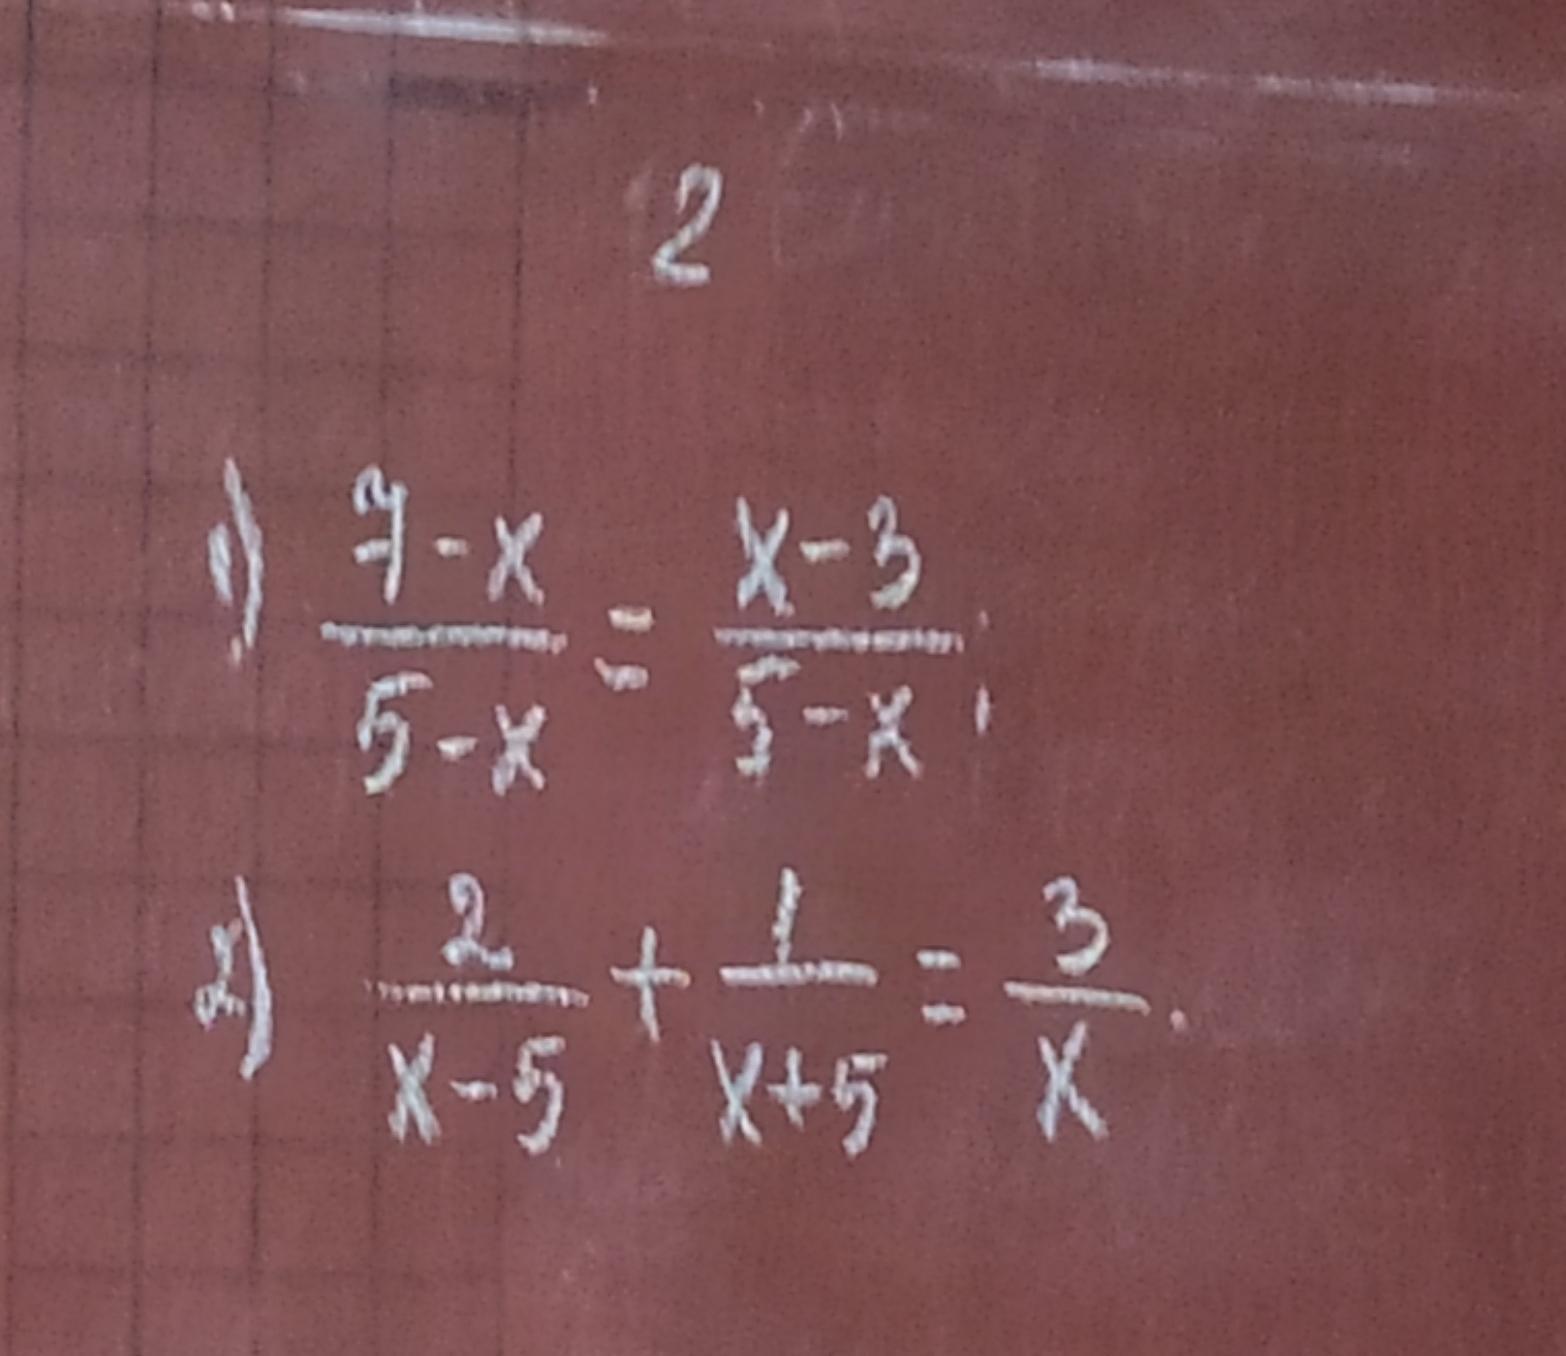 2
1) \frac{7-x}{5-x} = \frac{x-3}{5-x};
2) \frac{2}{x-5} + \frac{1}{x+5} = \frac{3}{x}.